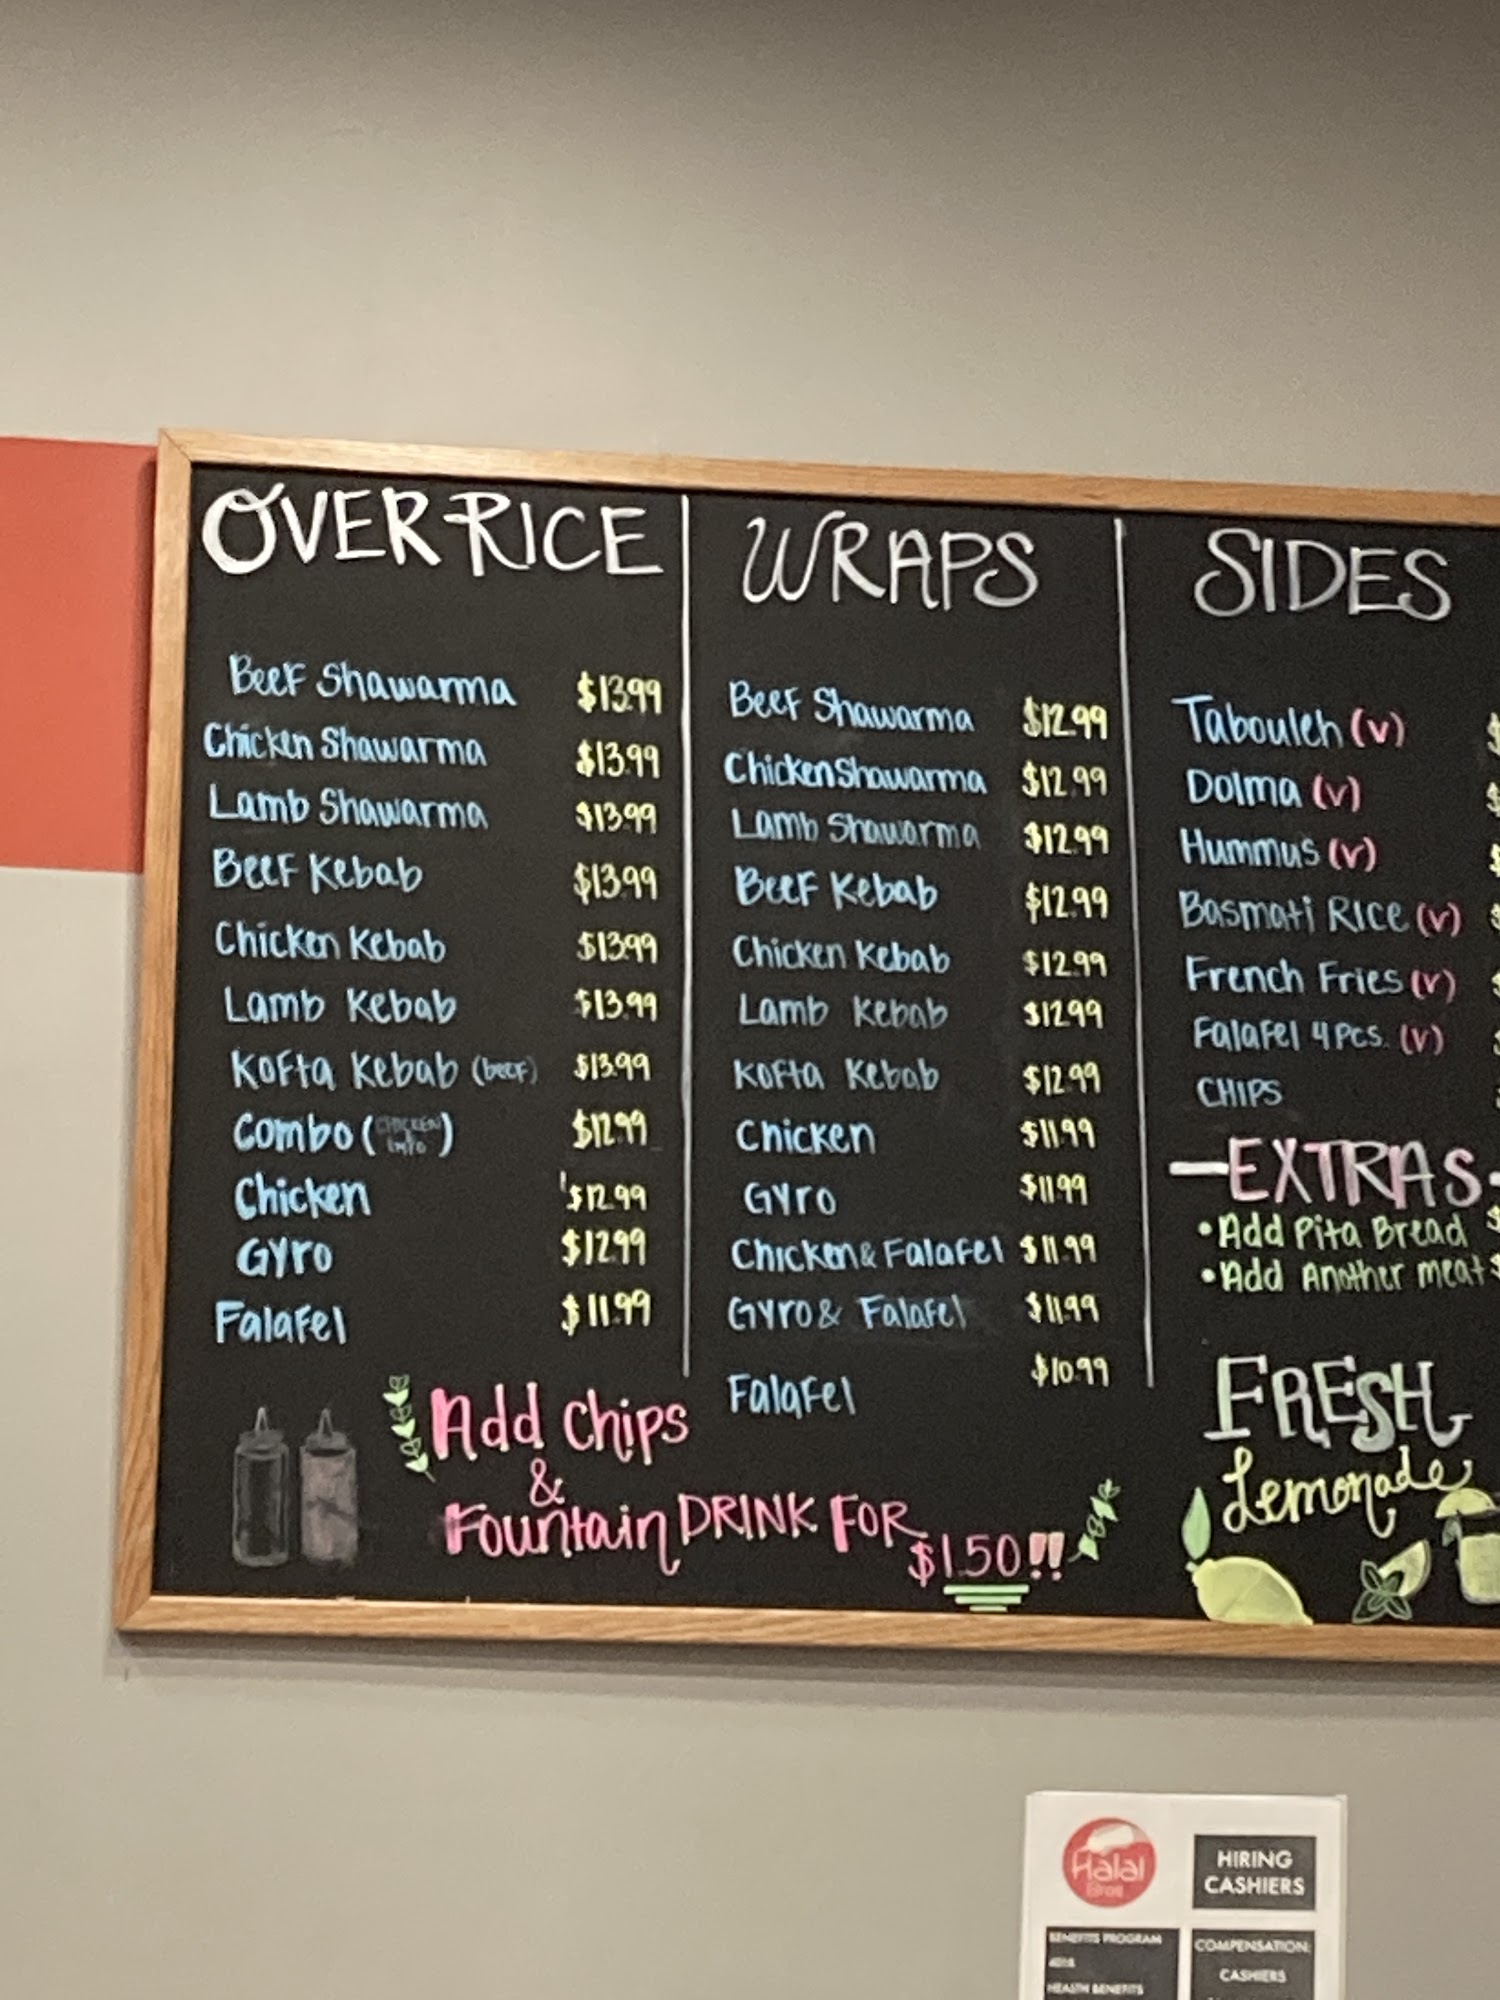 OVER RICE
Beef Shawarma $13.99
Chicken Shawarma $13.99
Lamb Shawarma $13.99
Beef Kebab $13.99
Chicken Kebab $13.99
Lamb Kebab $13.99
Kofta Kebab (beef) $13.99
Combo (CHICKEN $12.99
Chicken $12.99
Gyro $12.99
Falafel $11.99
WRAPS
Beef Shawarma $12.99
Chicken Shawarma $12.99
Lamb Shawarma $12.99
Beef Kebab $12.99
Chicken Kebab $12.99
Lamb Kebab $12.99
Kofta Kebab $12.99
Chicken $11.99
Gyro $11.99
Chicken & Falafel $11.99
Gyro & Falafel $11.99
Falafel $10.99
Add Chips
&
Fountain DRINK FOR
$1.50!!
SIDES
Tabouleh (v) $
Dolma (v) $
Hummus (v) $
Basmati Rice (v) $
French Fries (v) $
Falafel 4 pcs. (v) $
CHIPS
EXTRAS
• Add Pita Bread $
• Add Another meat $
FRESH
Lemonade
Halal
Bros
HIRING
CASHIERS
BENEFITS PROGRAM
401k
HEALTH BENEFITS
COMPENSATION:
CASHIERS